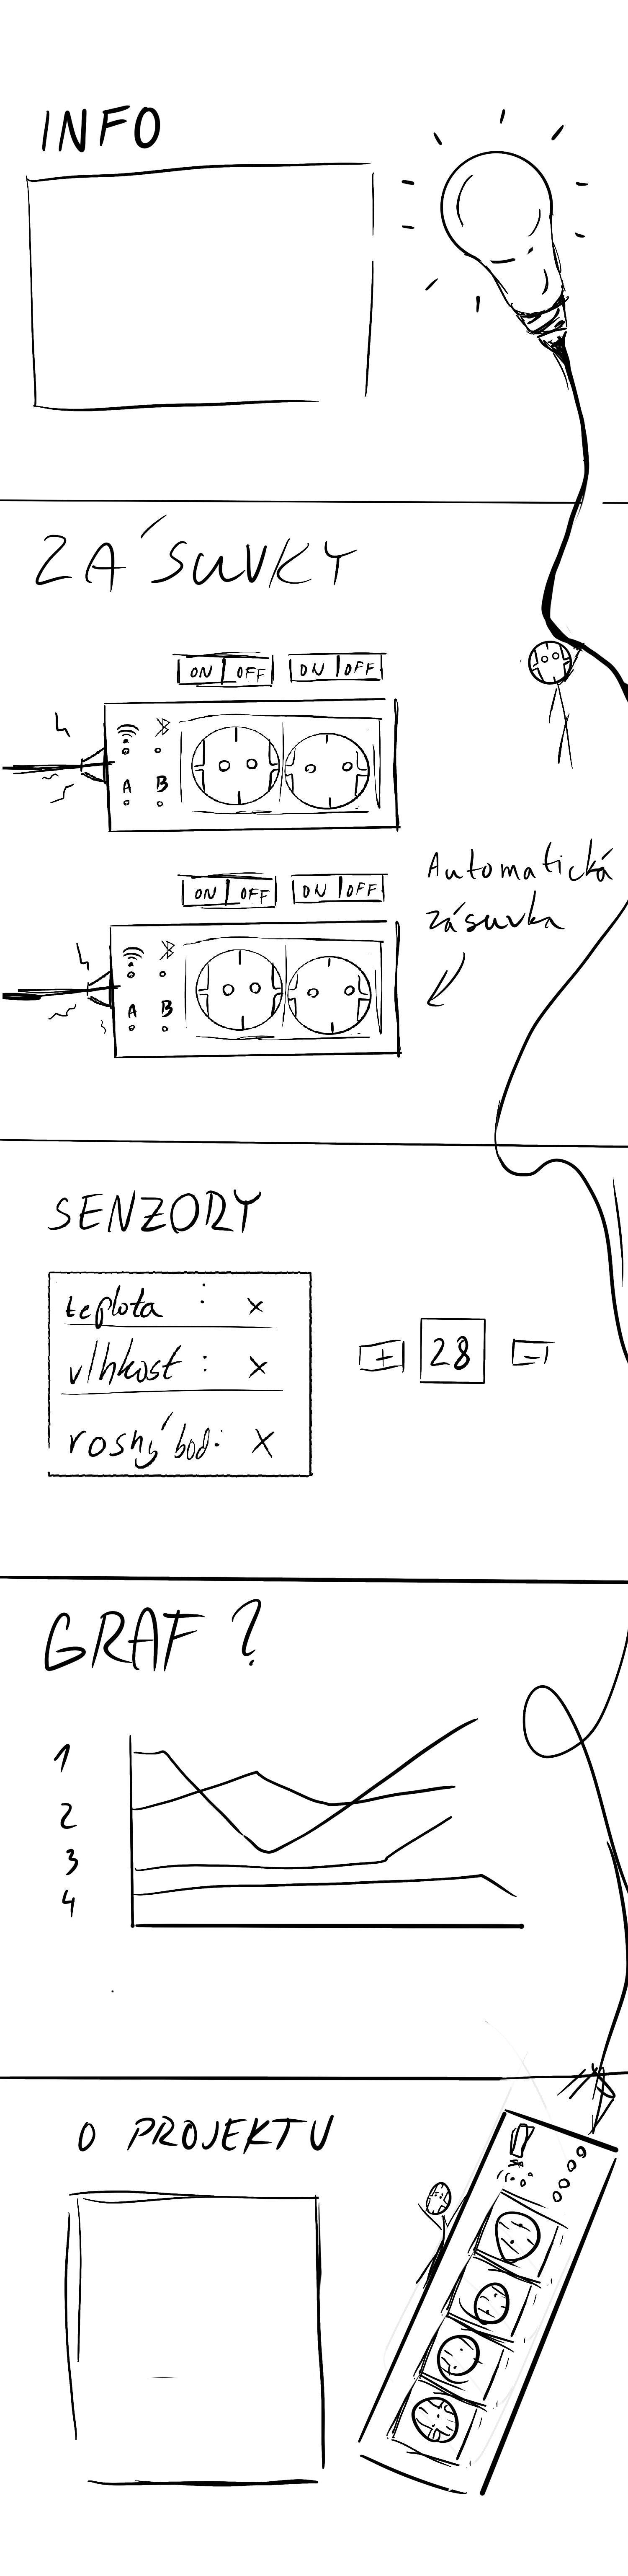 INFO
ZÁSUVKY
ON OFF ON OFF
A B
ON OFF ON OFF
Automatická
zásuvka
A B
SENZORY
teplota : x
vlhkost : x
+ 28 -
rosný bod: X
GRAF ?
1
2
3
4
O PROJEKTU